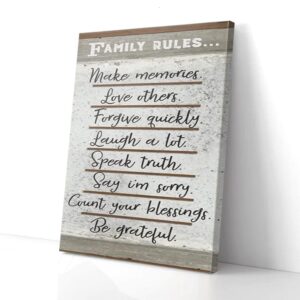 FAMILY RULES...
Make memories.
Love others.
Forgive quickly.
Laugh a lot.
Speak truth.
Say i'm sorry.
Count your blessings.
Be grateful.